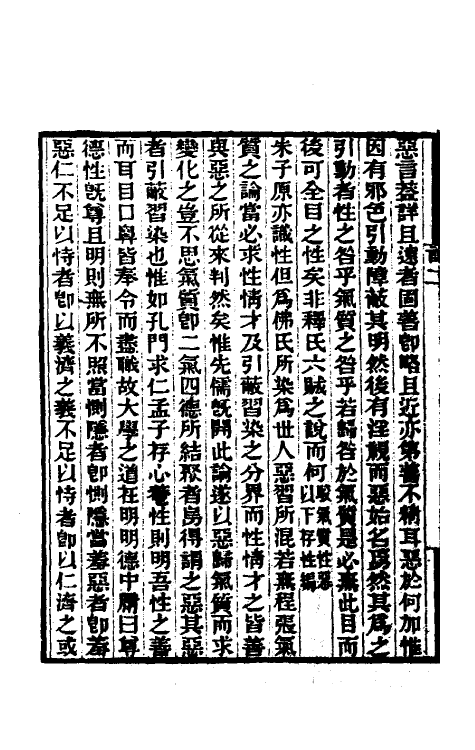 惡言蓋詳且遠者固善卽略且近亦第善不精耳惡於何加惟
因有邪色引動障蔽其明然後有淫視而惡始名焉然其爲之
引動者性之咎乎氣質之咎乎若歸咎於氣質是必無此目而
後可全目之性矣非釋氏六賊之說而何以下存性編駁氣質性惡
朱子原亦識性但爲佛氏所染爲世人惡習所混若無程張氣
質之論當必求性情才及引蔽習染之分界而性情才之皆善
與惡之所從來判然矣惟先儒旣開此論遂以惡歸氣質而求
變化之豈不思氣質卽二氣四德所結聚者烏得謂之惡其惡
者引蔽習染也惟如孔門求仁孟子存心養性則明吾性之善
而耳目口鼻皆奉令而盡職故大學之道在明明德中庸曰尊
德性旣尊且明則無所不照當惻隱者卽惻隱當羞惡者卽羞
惡仁不足以恃者卽以義濟之義不足以恃者卽以仁濟之或